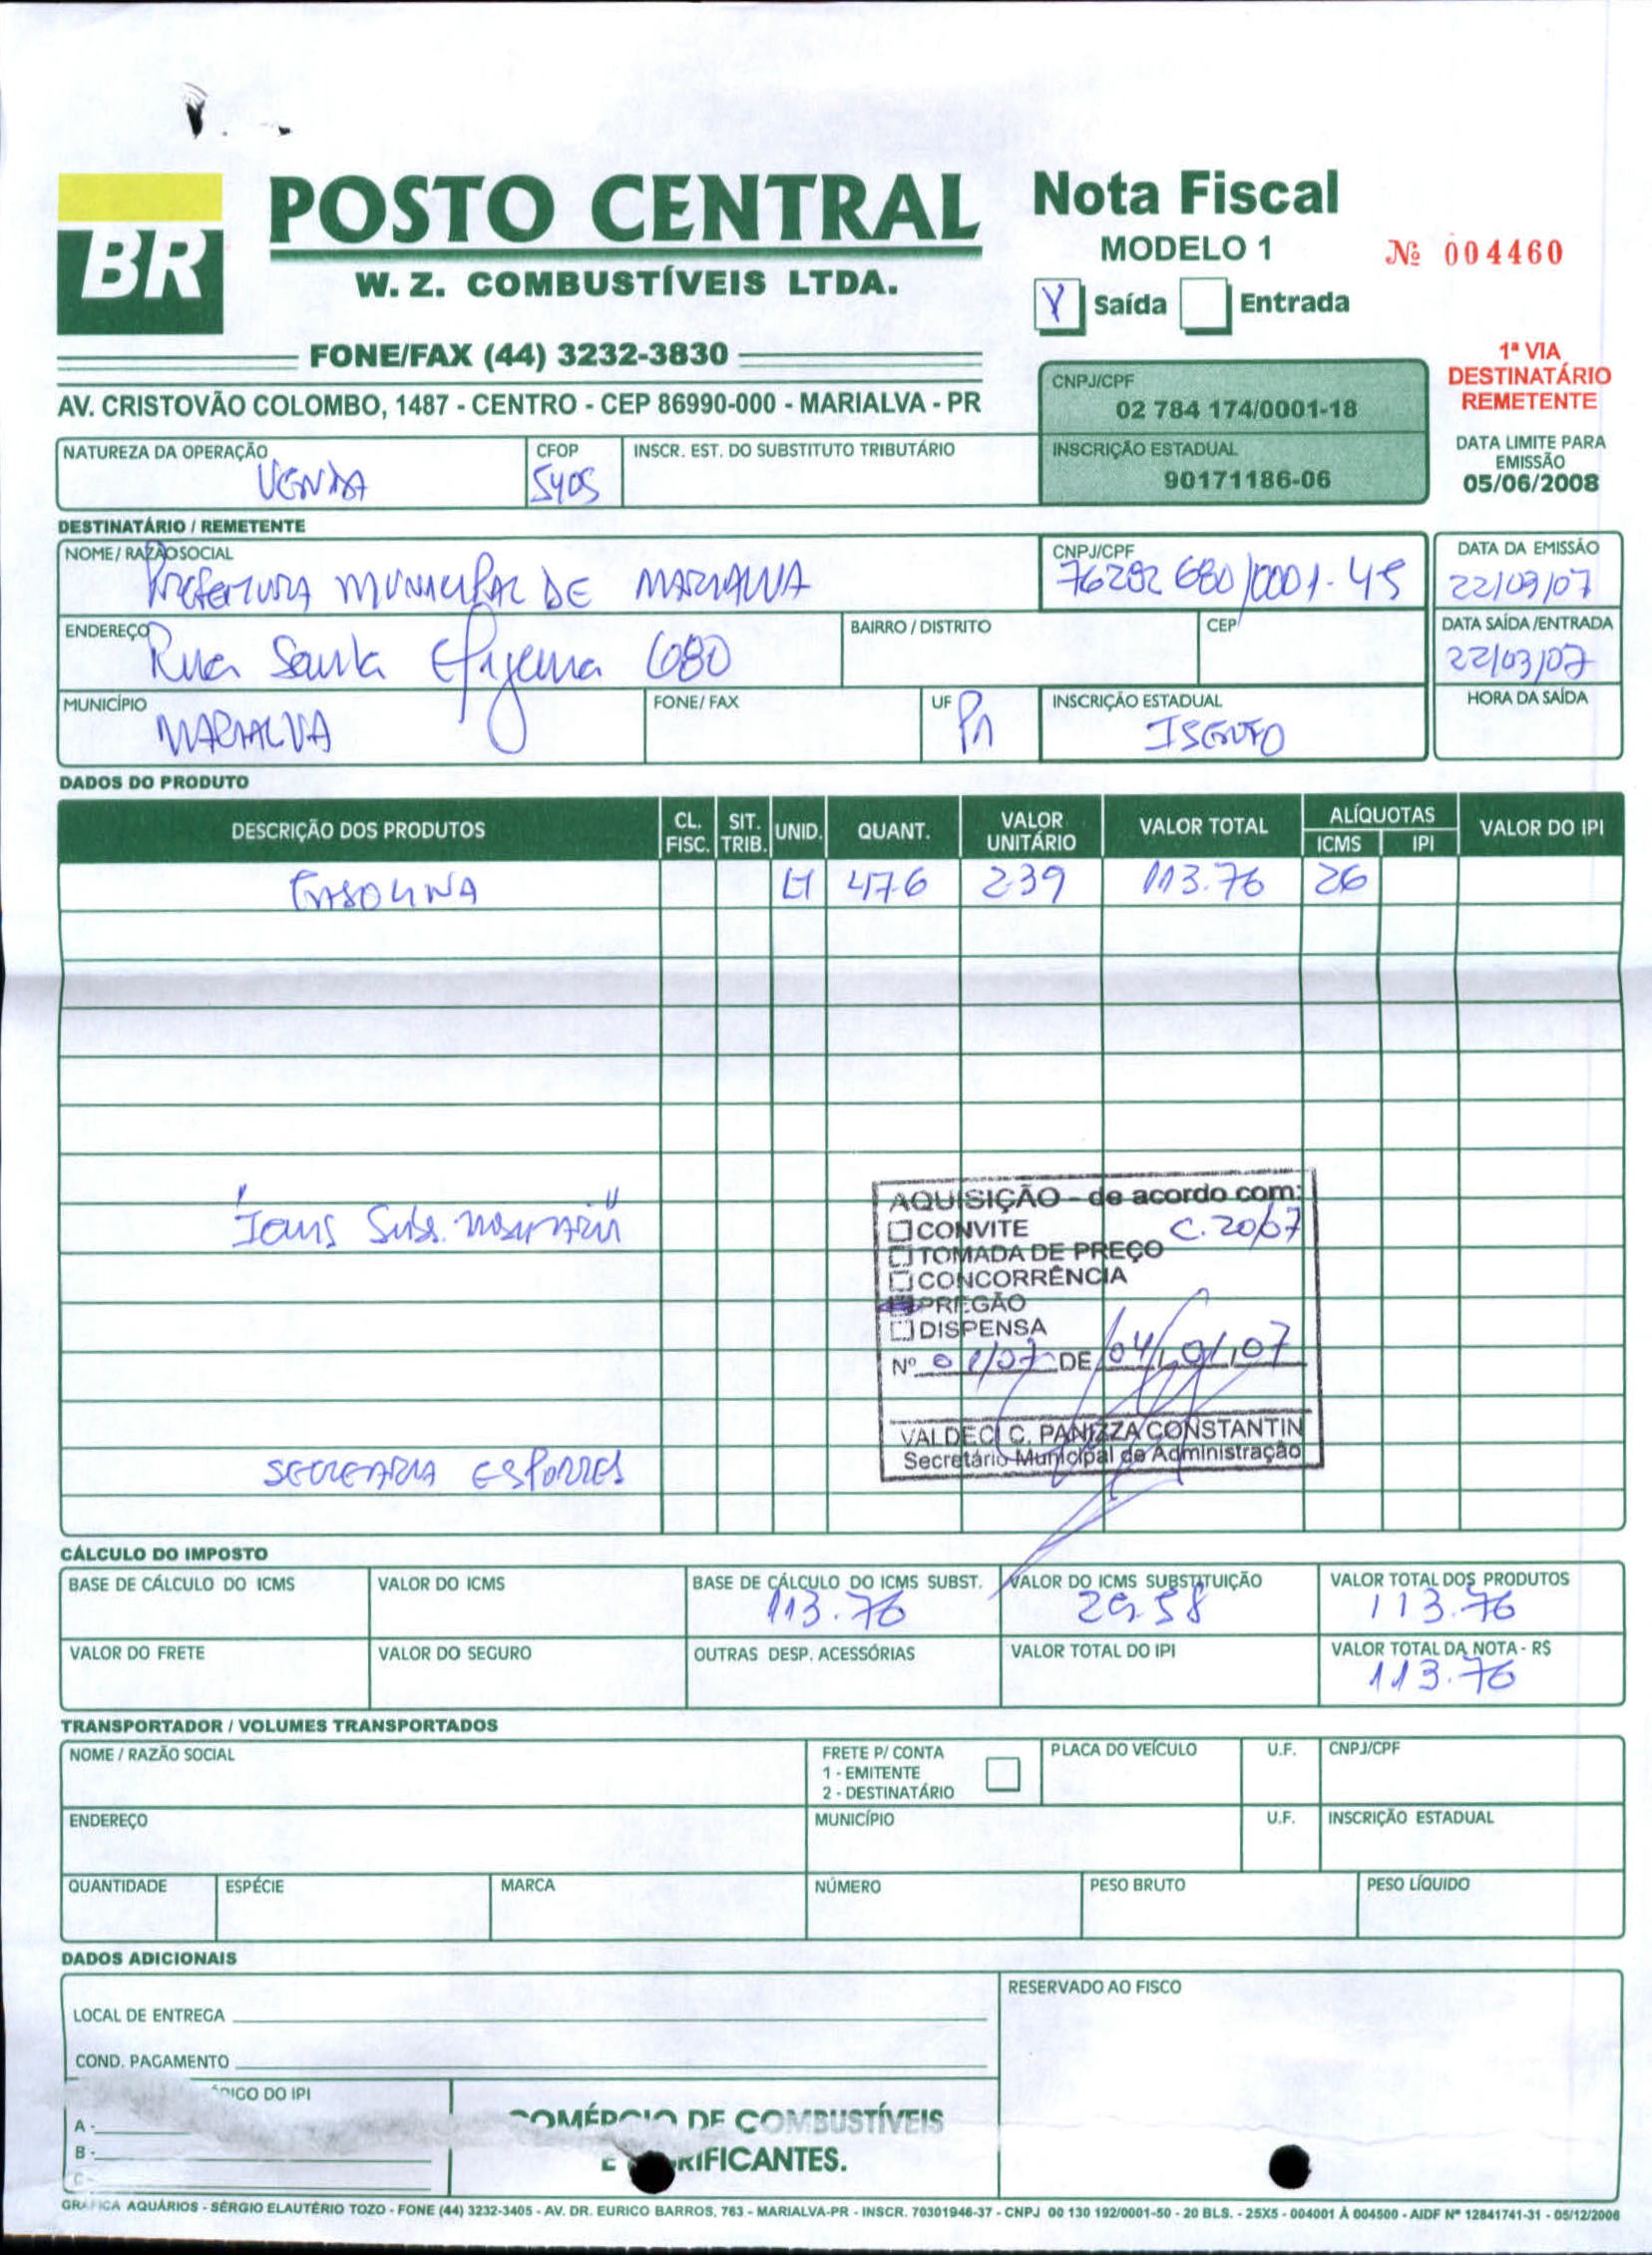 BR
POSTO CENTRAL
W. Z. COMBUSTÍVEIS LTDA.
FONE/FAX (44) 3232-3830
AV. CRISTOVÃO COLOMBO, 1487 - CENTRO - CEP 86990-000 - MARIALVA - PR
Nota Fiscal
MODELO 1
Nº 004460
X Saída Entrada
1ª VIA
DESTINATÁRIO
REMETENTE
CNPJ/CPF
02 784 174/0001-18
INSCRIÇÃO ESTADUAL
90171186-06
DATA LIMITE PARA
EMISSÃO
05/06/2008
NATUREZA DA OPERAÇÃO CFOP INSCR. EST. DO SUBSTITUTO TRIBUTÁRIO
VENDA 5405
DESTINATÁRIO / REMETENTE
NOME / RAZÃO SOCIAL CNPJ/CPF DATA DA EMISSÃO
PREFEITURA MUNICIPAL DE MARIALVA 76282 680/0001-45 22/03/07
ENDEREÇO BAIRRO / DISTRITO CEP DATA SAÍDA /ENTRADA
Rua Santa Efigenia 680 22/03/07
MUNICÍPIO FONE/ FAX UF INSCRIÇÃO ESTADUAL HORA DA SAÍDA
MARIALVA PR ISENTO
DADOS DO PRODUTO
DESCRIÇÃO DOS PRODUTOS CL. FISC. SIT. TRIB. UNID. QUANT. VALOR UNITÁRIO VALOR TOTAL ALÍQUOTAS ICMS IPI VALOR DO IPI
GASOLINA LT 47.6 2.39 113.76 26
AQUISIÇÃO - de acordo com:
CONVITE C. 20/07
TOMADA DE PREÇO
CONCORRÊNCIA
PREGÃO
DISPENSA
Nº 01/07 DE 04/01/07
VALDECI C. PANIZZA CONSTANTIN
Secretário Municipal de Administração
SECRETARIA ESPORTES
CÁLCULO DO IMPOSTO
BASE DE CÁLCULO DO ICMS VALOR DO ICMS BASE DE CÁLCULO DO ICMS SUBST. VALOR DO ICMS SUBSTITUIÇÃO VALOR TOTAL DOS PRODUTOS
113.76 29.58 113.76
VALOR DO FRETE VALOR DO SEGURO OUTRAS DESP. ACESSÓRIAS VALOR TOTAL DO IPI VALOR TOTAL DA NOTA - R$
113.76
TRANSPORTADOR / VOLUMES TRANSPORTADOS
NOME / RAZÃO SOCIAL FRETE P/ CONTA PLACA DO VEÍCULO U.F. CNPJ/CPF
1 - EMITENTE
2 - DESTINATÁRIO
ENDEREÇO MUNICÍPIO U.F. INSCRIÇÃO ESTADUAL
QUANTIDADE ESPÉCIE MARCA NÚMERO PESO BRUTO PESO LÍQUIDO
DADOS ADICIONAIS
RESERVADO AO FISCO
LOCAL DE ENTREGA
COND. PAGAMENTO
DO IPI
A -
B -
C -
COMÉRCIO DE COMBUSTÍVEIS
E RIFICANTES.
GRÁFICA AQUÁRIOS - SÉRGIO ELAUTÉRIO TOZO - FONE (44) 3232-3405 - AV. DR. EURICO BARROS, 763 - MARIALVA-PR - INSCR. 70301946-37 - CNPJ 00 130 192/0001-50 - 20 BLS. - 25X5 - 004001 À 004500 - AIDF Nº 12841741-31 - 05/12/2006